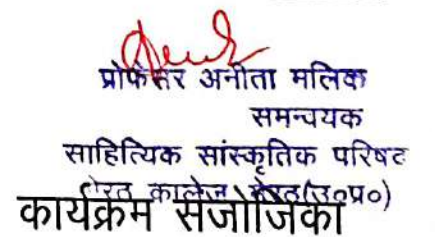 प्रोफेसर अनीता मलिक
समन्वयक
साहित्यिक सांस्कृतिक परिषद
मेरठ कालेज, मेरठ(उ०प्र०)
कार्यक्रम संजोजिका